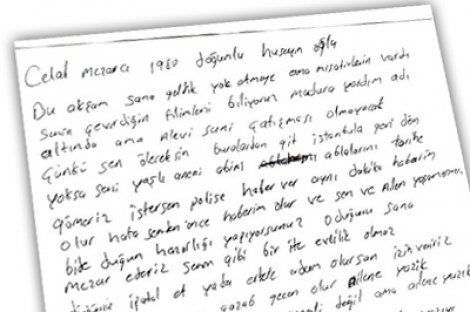 Celal mezarcı 1980 doğumlu huseyin oğlu
Bu akşam sana geldik yok etmeye ama misafirlerin vardı
Senin çevirdiğin filimleri biliyoruz madura yardım adı
altında ama Alevi suni çatışması olmayacak
Çünkü sen öleceksin buralardan git istanbula geri dön
yoksa seni yaşlı aneni abini ablalarını tarihe
gömeriz istersen polise haber ver aynı dakika haberim
olur hata senden önce haberim olur ve sen ve Ailen yaşamanını
bide duğun hazırlığı yapıyorsunuz Oduğunu sana
mezar ederiz senin gibi bir ite evlilik olmaz
iptal et yada erkek adam olursan izin veririz
gecen olur ailene yazık
değil ama ailene yazık